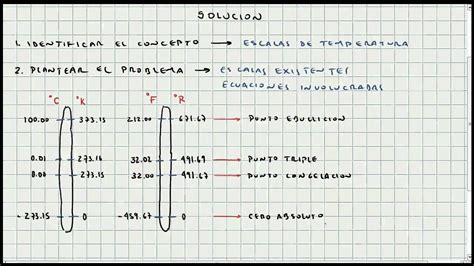 SOLUCION
1. IDENTIFICAR EL CONCEPTO → ESCALAS DE TEMPERATURA
2. PLANTEAR EL PROBLEMA → ESCALAS EXISTENTES
ECUACIONES INVOLUCRADAS
°C °K °F °R
100.00 373.15 212.00 671.67 → PUNTO EBULLICION
0.01 273.16 32.02 491.69 → PUNTO TRIPLE
0.00 273.15 32.00 491.67 → PUNTO CONGELACION
-273.15 0 -459.67 0 → CERO ABSOLUTO